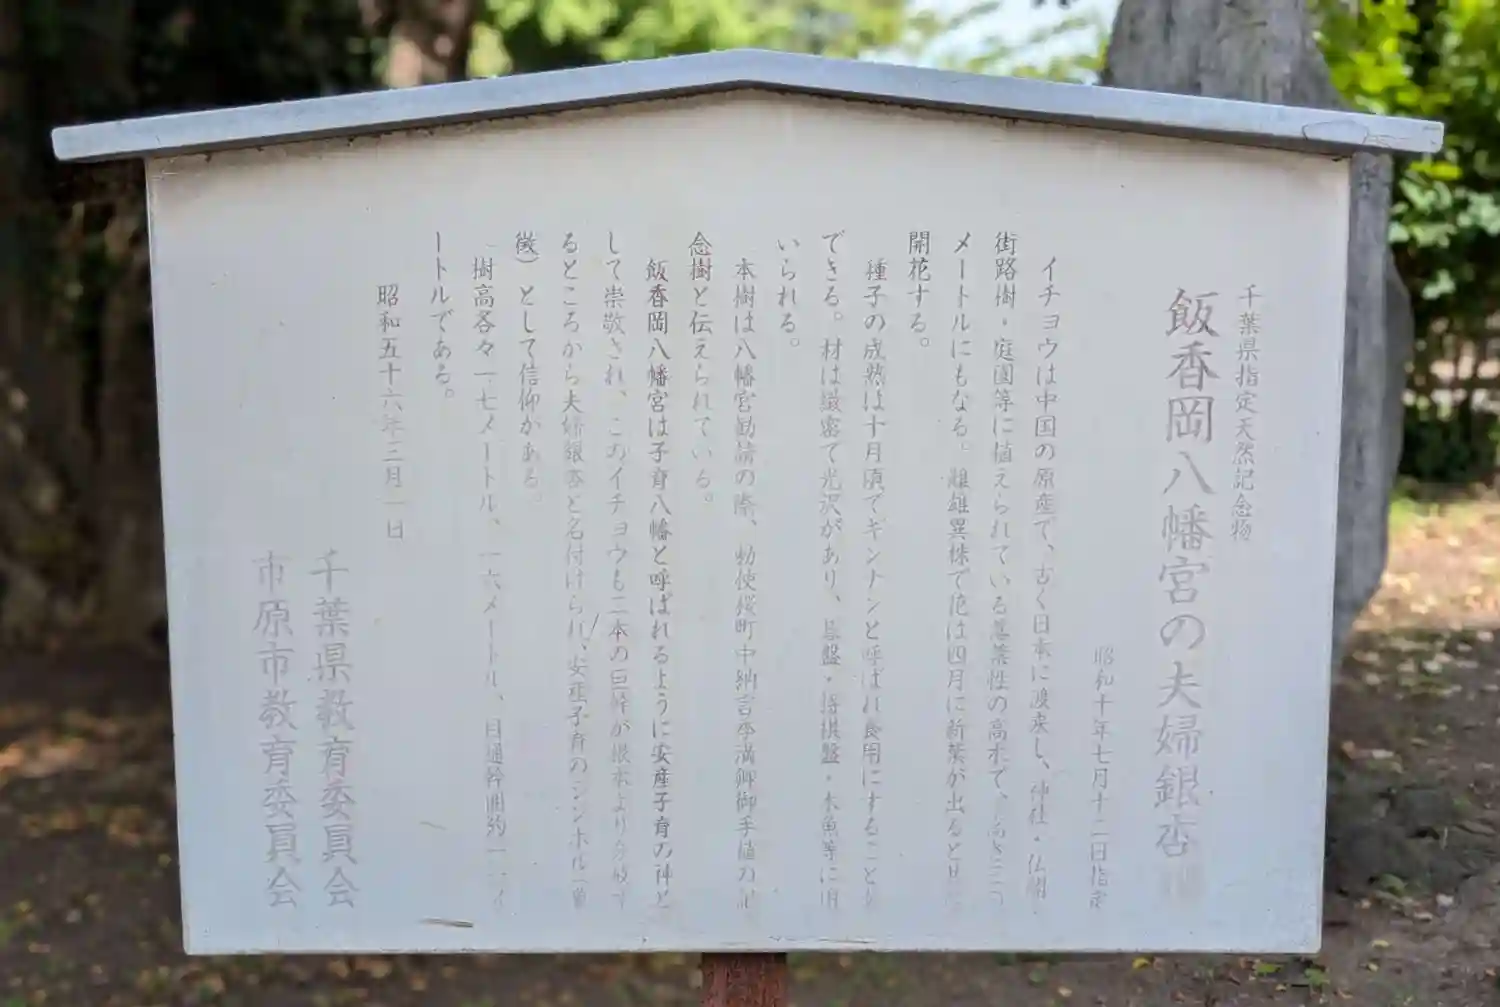 千葉県指定天然記念物
飯香岡八幡宮の夫婦銀杏
昭和十年七月十二日指定
イチョウは中国の原産で、古く日本に渡来し、神社・仏閣・
街路樹・庭園等に植えられている落葉性の高木で、高さ三〇
メートルにもなる。雌雄異株で花は四月に新葉が出ると
開花する。
種子の成熟は十月頃でギンナンと呼ばれ食用にすることが
できる。材は緻密で光沢があり、碁盤・将棋盤・木魚等に用
いられる。
本樹は八幡宮勧請の際、勅使桜町中納言季満卿御手植の
念樹と伝えられている。
飯香岡八幡宮は子育八幡と呼ばれるように安産子育の神と
して崇敬され、このイチョウも二本の巨幹が根本より分岐す
るところから夫婦銀杏と名付けられ、安産子育のシンボル（
徴）として信仰がある。
樹高各々一七メートル、一六メートル、目通幹囲約一一メ
ートルである。
昭和五十六年三月一日
千葉県教育委員会
市原市教育委員会